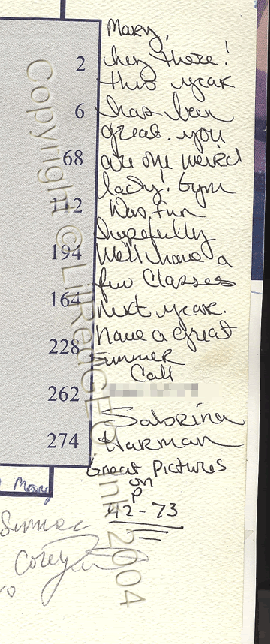 Mary,
hey there!
this year
has been
great. you
are my weird
lady! Gym
Was fun
hopefully
We'll have a
few Classes
next year.
have a great
Summer
Call
Sabrina
Harman
Great Pictures
on
P
42-73
2
6
68
112
194
164
228
262
274
Mary
Summer
Corey
Copyright @
2004